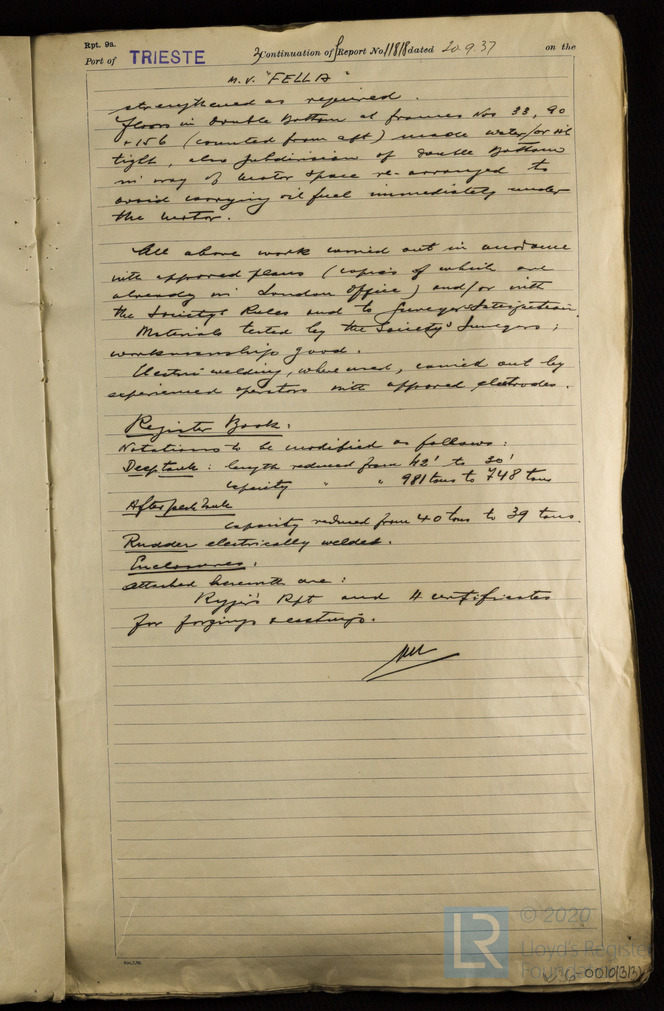 Rpt. 9a.
Port of TRIESTE
Continuation of Report No 11818 dated 20.9.37 on the
M.V. "FELLA"
strengthened as required.
Floors in Double Bottom at frames Nos 33, 90
& 156 (counted from aft) made water/or oil
tight, also subdivision of Double Bottom
in way of motor space re-arranged to
avoid carrying oil fuel immediately under
the motor.
All above work carried out in accordance
with approved plans (copies of which are
already in London Office) and/or with
the Society's Rules and to Surveyors Satisfaction.
Materials tested by the Society's Surveyors;
workmanship good.
Electric welding, where used, carried out by
experienced operators with approved electrodes.
Register Book.
Notations to be modified as follows:
Deep tank: length reduced from 42' to 30'
capacity " " 981 tons to 748 tons
After peak tank
capacity reduced from 40 tons to 39 tons.
Rudder electrically welded.
Enclosures.
Attached herewith are:
Rpt and 4 certificates
for forgings & castings.
LR
© 2020
Lloyd's Register
Foundation